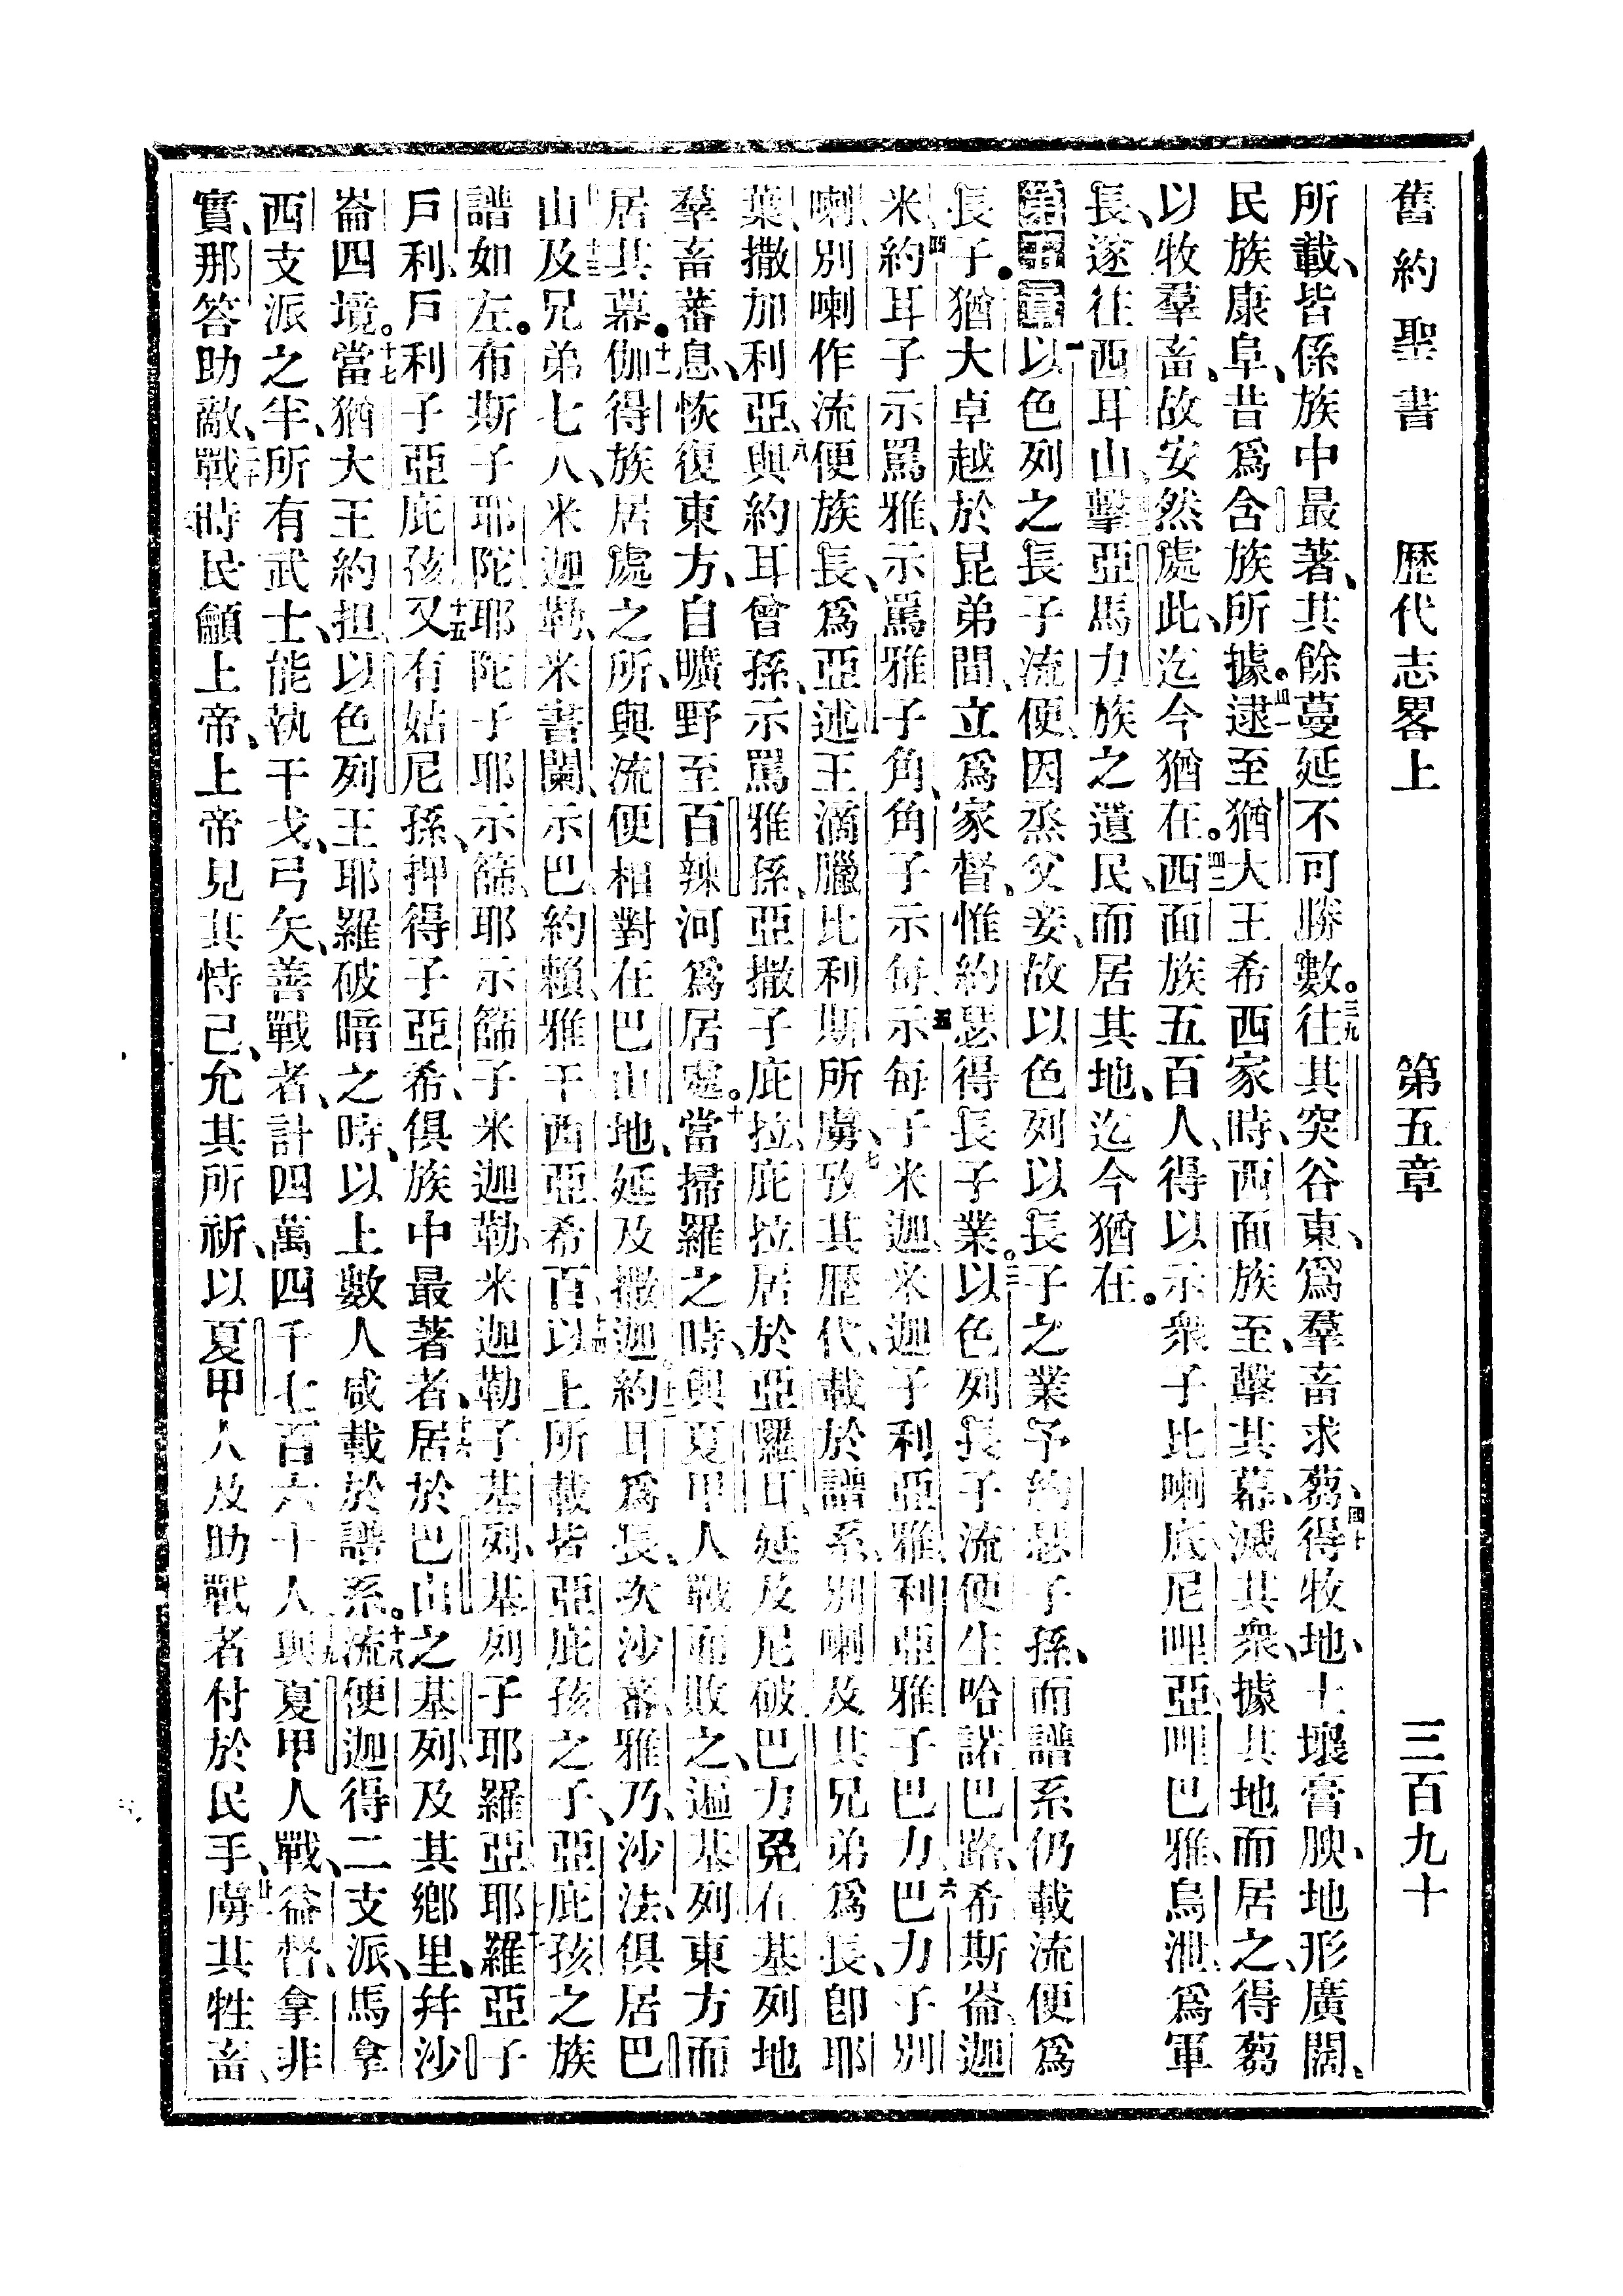 舊約聖書 歷代志畧上 第五章 三百九十
所載、皆係族中最著、其餘蔓延不可勝數。三九往其突谷東、爲羣畜求芻、四十得牧地、土壤膏腴、地形廣闊、
民族康阜、昔爲含族所據。四一逮至猶大王希西家時、西面族至、擊其幕、滅其衆、據其地而居之、得芻
以牧羣畜、故安然處此、迄今猶在。四二西面族五百人、得以示衆子比喇底、尼哩亞、哩巴雅、烏泄爲軍
長、遂往西耳山、擊亞馬力族之遺民、而居其地、迄今猶在。
第五章 一以色列之長子流便、因烝父妾、故以色列以長子之業予約瑟子孫、而譜系仍載流便爲
長子。猶大卓越於昆弟間、立爲家督、惟約瑟得長子業。三以色列長子流便生哈諾、巴路、希斯崙、迦
米、四約耳子示罵雅、示罵雅子角、角子示每、五示每子米迦、米迦子利亞雅、利亞雅子巴力、六巴力子別
喇、別喇作流便族長、爲亞述王滴臘比利斯所虜、七攷其歷代、載於譜系、別喇及其兄弟爲長、卽耶
葉、撒加利亞、八與約耳曾孫、示罵雅孫、亞撒子庇拉、庇拉居於亞羅耳、延及尼破、巴力免、在基列地
羣畜蕃息、恢復東方、自曠野至百辣河爲居處。十當掃羅之時、與夏甲人戰而敗之、遍基列東方而
居其幕。十一伽得族居處之所、與流便相對、在巴山地、延及撒迦、約耳爲長、次沙番、雅乃、沙法、俱居巴
山、及兄弟七人、米迦勒、米書闌、示巴、約賴、雅干、西亞、希百、以上所載、皆亞庇孩之子、亞庇孩之族
譜如左。布斯子耶陀、耶陀子耶示篩、耶示篩子米迦勒、米迦勒子基列、基列子耶羅亞、耶羅亞子
戶利、戶利子亞庇孩、十五又有姑尼孫、押得子亞希、俱族中最著者、居於巴山之基列、及其鄉里、幷沙
崙四境。十七當猶大王約担、以色列王耶羅破暗之時、以上數人咸載於譜系。十八流便、迦得二支派、馬拿
西支派之半、所有武士、能執干戈、弓矢、善戰者、計四萬四千七百六十人、與夏甲人戰、益督、拿非
實、那答助敵、戰時民籲上帝、上帝見其恃己、允其所祈、以夏甲人及助戰者付於民手、虜其牲畜、